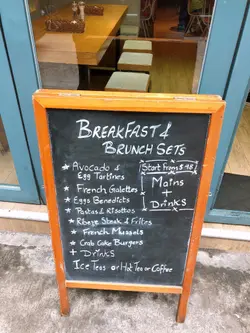 BREAKFAST &
BRUNCH SETS
★ Avocado &
Egg Tartines
★ French Galettes
★ Eggs Benedicts
★ Pastas & Risottos
★ Ribeye Steak & Frites
★ French Mussels
★ Crab Cake Burgers
+ DRINKS
Ice Teas or Hot Tea or Coffee
Start From $98
Mains
+
Drinks